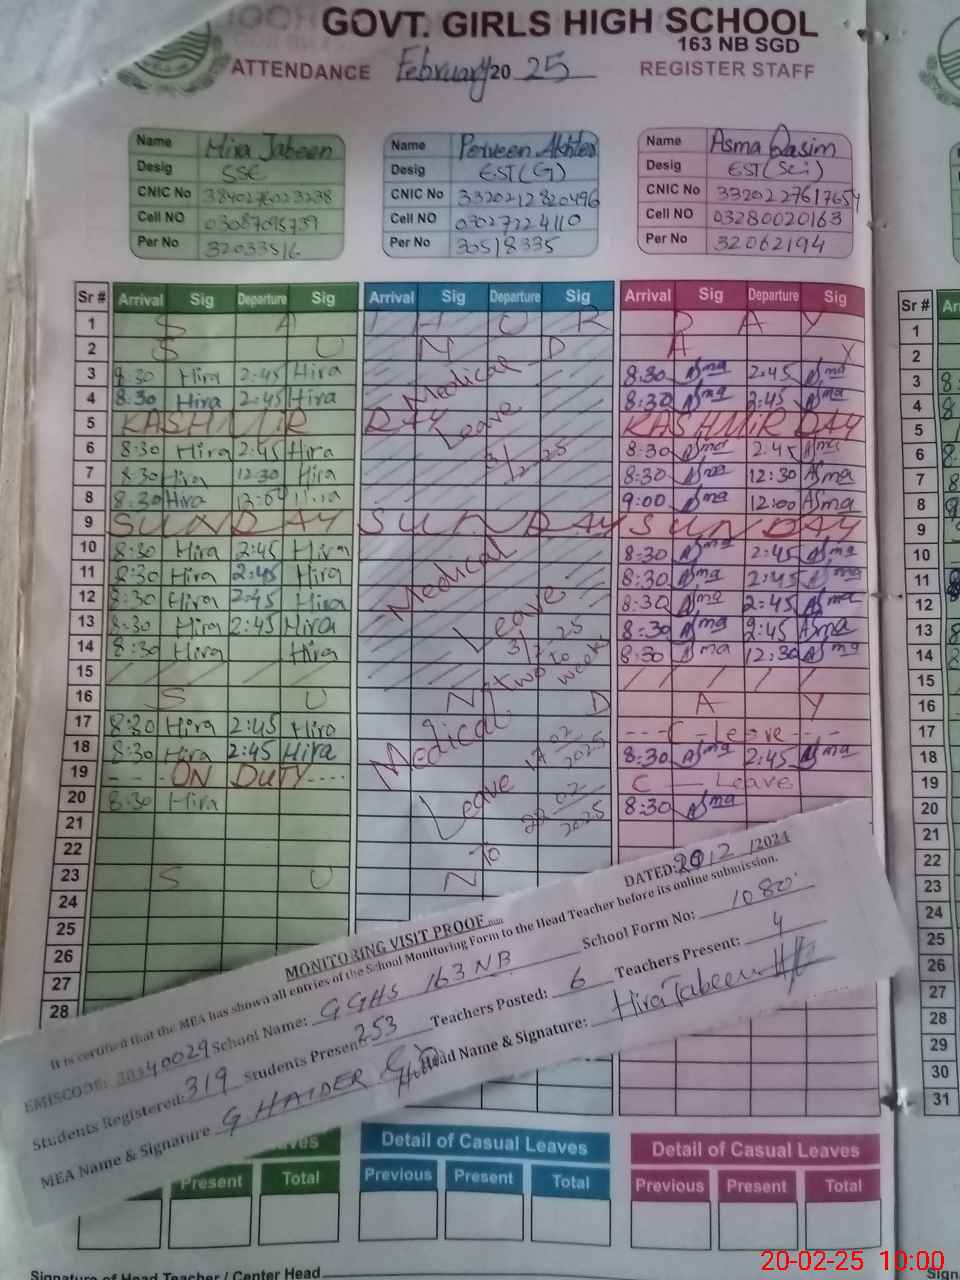 GOVT. GIRLS HIGH SCHOOL
163 NB SGD
ATTENDANCE February 20 25 REGISTER STAFF
Name Hira Jabeen
Desig SSE
CNIC No 3840276023238
Cell NO 03087095739
Per No 32033516
Name Perveen Akhter
Desig EST(G)
CNIC No 3320212820496
Cell NO 03027224110
Per No 30518335
Name Asma Qasim
Desig EST(Sci)
CNIC No 3320227617654
Cell NO 03280020163
Per No 32062194
Sr # Arrival Sig Departure Sig Arrival Sig Departure Sig Arrival Sig Departure Sig Sr #
1 S A T U R D A Y 1
2 S U N D A Y 2
3 8:30 Hira 2:45 Hira Medical 8:30 Asma 2:45 Asma 3
4 8:30 Hira 2:45 Hira Leave 8:30 Asma 2:45 Asma 4
5 KASHMIR DAY KASHMIR DAY 5
6 8:30 Hira 2:45 Hira 3/2-25 8:30 Asma 2:45 Asma 6
7 8:30 Hira 12:30 Hira 8:30 Asma 12:30 Asma 7
8 8:30 Hira Hira 9:00 Asma 12:00 Asma 8
9 SUNDAY SUNDAY SUNDAY 9
10 8:30 Hira 2:45 Hira Medical 8:30 Asma 2:45 Asma 10
11 8:30 Hira 2:45 Hira 8:30 Asma 2:45 Asma 11
12 8:30 Hira 2:45 Hira Leave 8:30 Asma 2:45 Asma 12
13 8:30 Hira 2:45 Hira 8:30 Asma 2:45 Asma 13
14 8:30 Hira Hira 3/2 25 to 8:30 Asma 12:30 Asma 14
15 two weeks 15
16 S U N D A Y 16
17 8:30 Hira 2:45 Hira Medical C - Leave 17
18 8:30 Hira 2:45 Hira 17 02 2025 8:30 Asma 2:45 Asma 18
19 ON DUTY Leave C - Leave 19
20 8:30 Hira 28 02 2025 8:30 Asma 20
21 21
22 To 22
23 S U N 23
24 24
25 25
26 26
27 27
28 28
29
30
31
MONITORING VISIT PROOF DATED: 12/2024
It is certified that the MEA has shown all entries of the School Monitoring Form to the Head Teacher before its online submission.
EMISCODE: 38140029 School Name: GGHS 163 NB School Form No: 1080
Students Registered: 319 Students Present 253 Teachers Posted: 6 Teachers Present: 4
MEA Name & Signature G HAIDER Head Name & Signature: Hira Jabeen
Detail of Casual Leaves Detail of Casual Leaves
Present Total Previous Present Total Previous Present Total
Signature of Head Teacher / Center Head
20-02-25 10:00